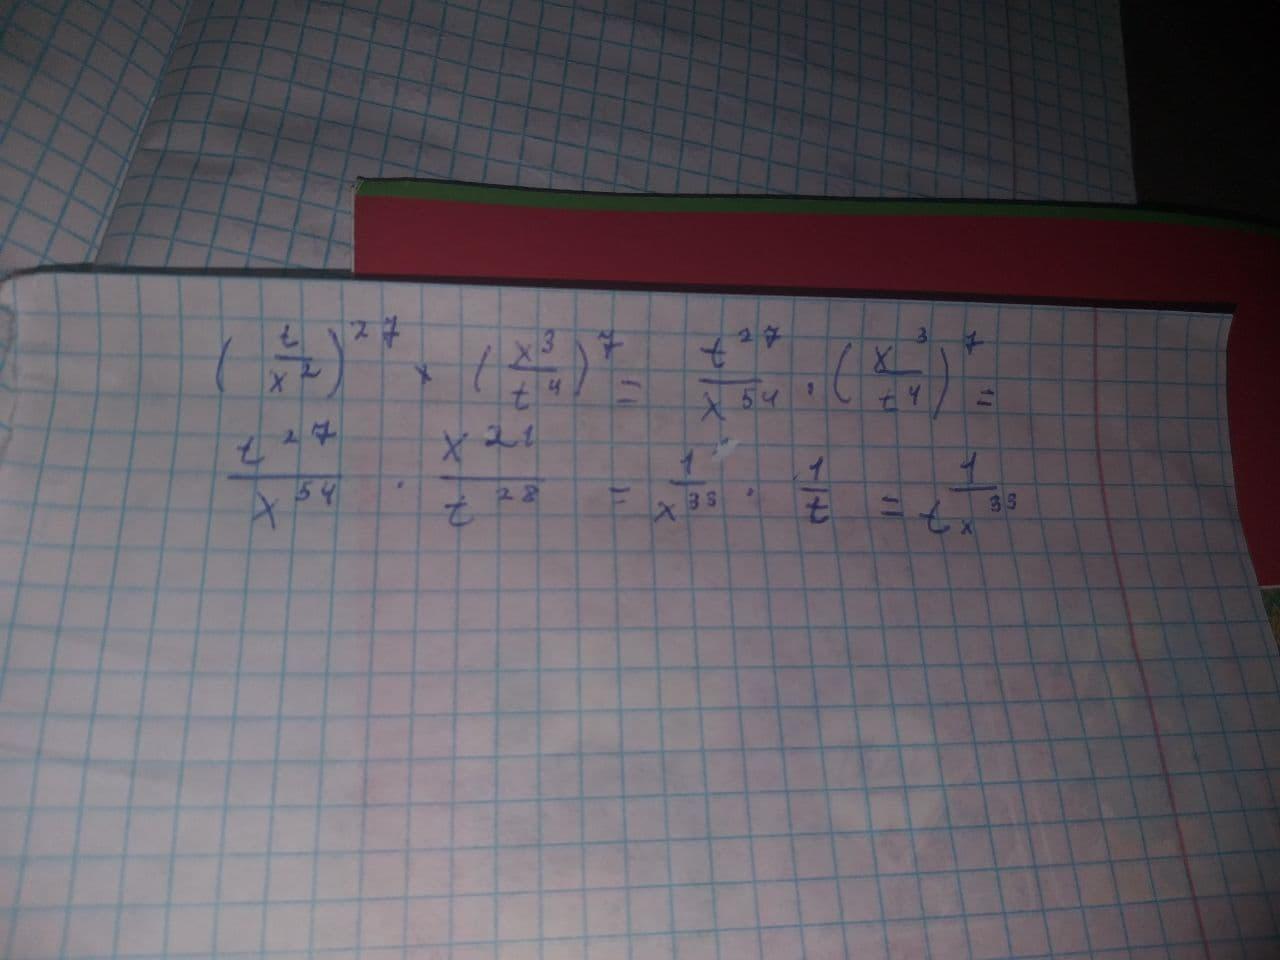 (t/x²)²⁷ × (x³/t⁴)⁷ = t²⁷/x⁵⁴ · (x³/t⁴)⁷ =
t²⁷/x⁵⁴ · x²¹/t²⁸ = 1/x³³ · 1/t = 1/tx³³